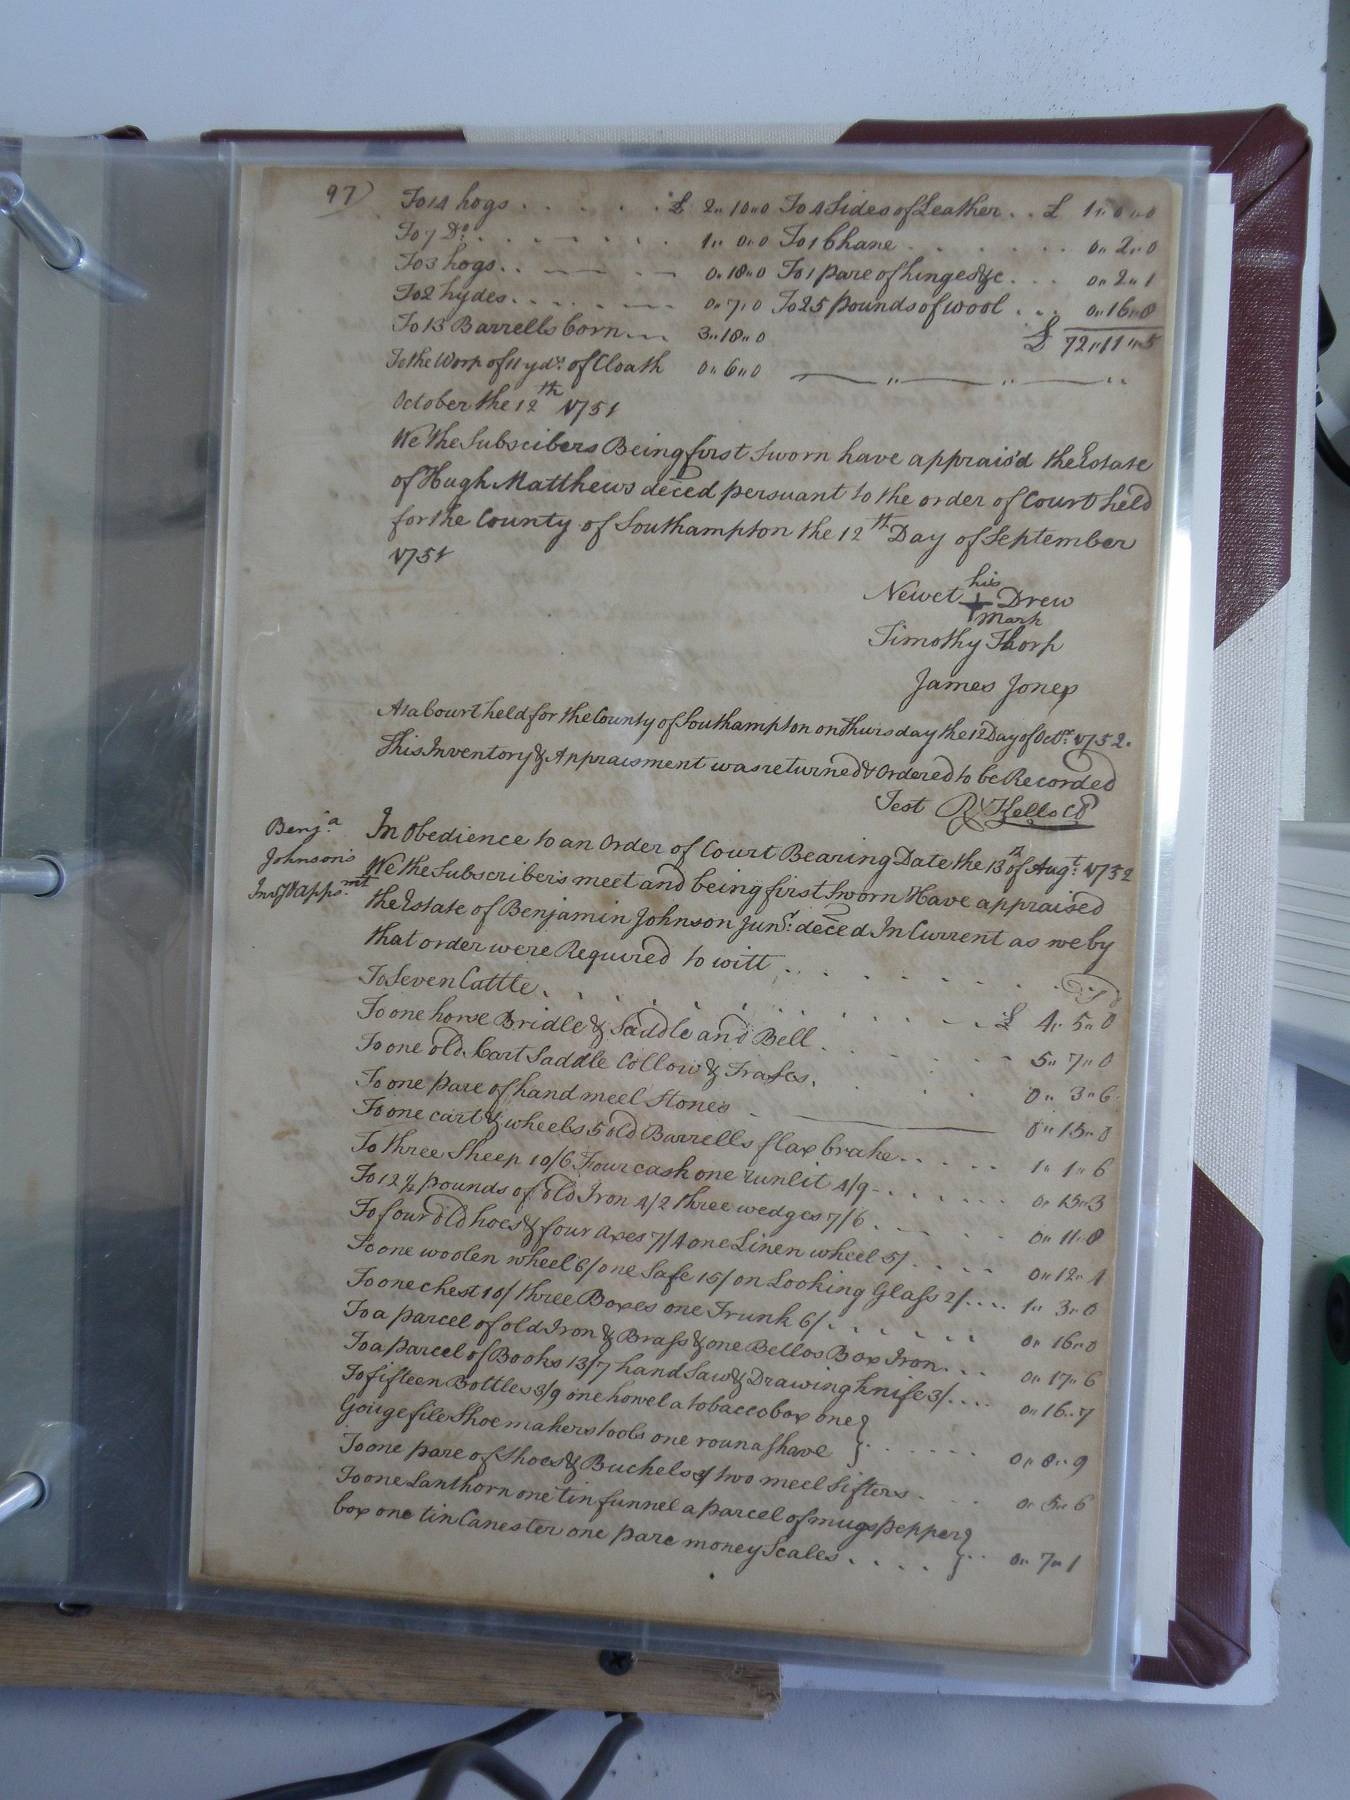 97)
To 14 hogs . . . . . £ 2,,10,,0 To 4 Sides of Leather . . £ 1,,0,,0
To 7 Do. . . . . . 1,,0,,0 To 1 Chane . . . . . . 0,,2,,0
To 3 hogs . . . . . 0,,18,,0 To 1 pare of hinges &c . . . 0,,2,,1
To 2 hydes . . . . . 0,,7,,0 To 25 pounds of wool . . . 0,,16,,8
To 13 Barrells Corn . . . 3,,18,,0 £ 72,,11,,5
To the Worp of 11 yds. of Cloath 0,,6,,0
October the 12th 1751
We the Subscibers Being first Sworn have apprais'd the Estate
of Hugh Matthews deced persuant to the order of Court held
for the County of Southampton the 12th Day of September
1751
Newet his + mark Drew
Timothy Thorp
James Jones
At a Court held for the County of Southampton on Thursday the 12 Day of Octr. 1752.
This Inventory & Appraisment was returned & Ordered to be Recorded
Test R Kello CP
Benja. Johnson's Inv. & apprs.mt
In Obedience to an Order of Court Bearing Date the 13th of Augt. 1752
We the Subscribers meet and being first Sworn Have appraised
the Estate of Benjamin Johnson Junr. deced In Current as we by
that order were Required to witt . . . . . . . .
To Seven Cattle . . . . . . . . £ 4,,5,,0
To one horse Bridle & Saddle and Bell . . . . . . 5,,7,,0
To one old Cart Saddle Collow & Trases . . . . 0,,3,,6
To one pare of hand meel Stones . 0,,15,,0
To one cart & wheels 5 old Barrells flax brake . . . . . 1,,1,,6
To three Sheep 10/6 Four cask one runlit 4/9 . . . . . . 0,,15,,3
To 12½ pounds of old Iron 4/2 three wedges 7/6 . . . . . 0,,11,,8
To four old hoes & four axes 7/4 one Linen wheel 5/ . . . . 0,,12,,4
To one woolen wheel 6/ one Safe 15/ on Looking Glass 2/ . . . . 1,,3,,0
To one chest 10/ three Boxes one Trunk 6/ . . . . . . 0,,16,,0
To a parcel of old Iron & Brass & one Bellos Box Iron . . . 0,,17,,6
To a parcel of Books 13/7 hand Saw & Drawing knife 3/ . . . . 0,,16,,7
To fifteen Bottles 3/9 one howel a tobacco box one
Gouge file Shoemakers tools one round shave } . . . . . . 0,,8,,9
To one pare of Shoes & Buckels two meel Sifters . . . 0,,5,,6
To one Lanthorn one tin funnel a parcel of mugs pepper
box one tin Canester one pare money Scales . . . . } . . 0,,7,,1